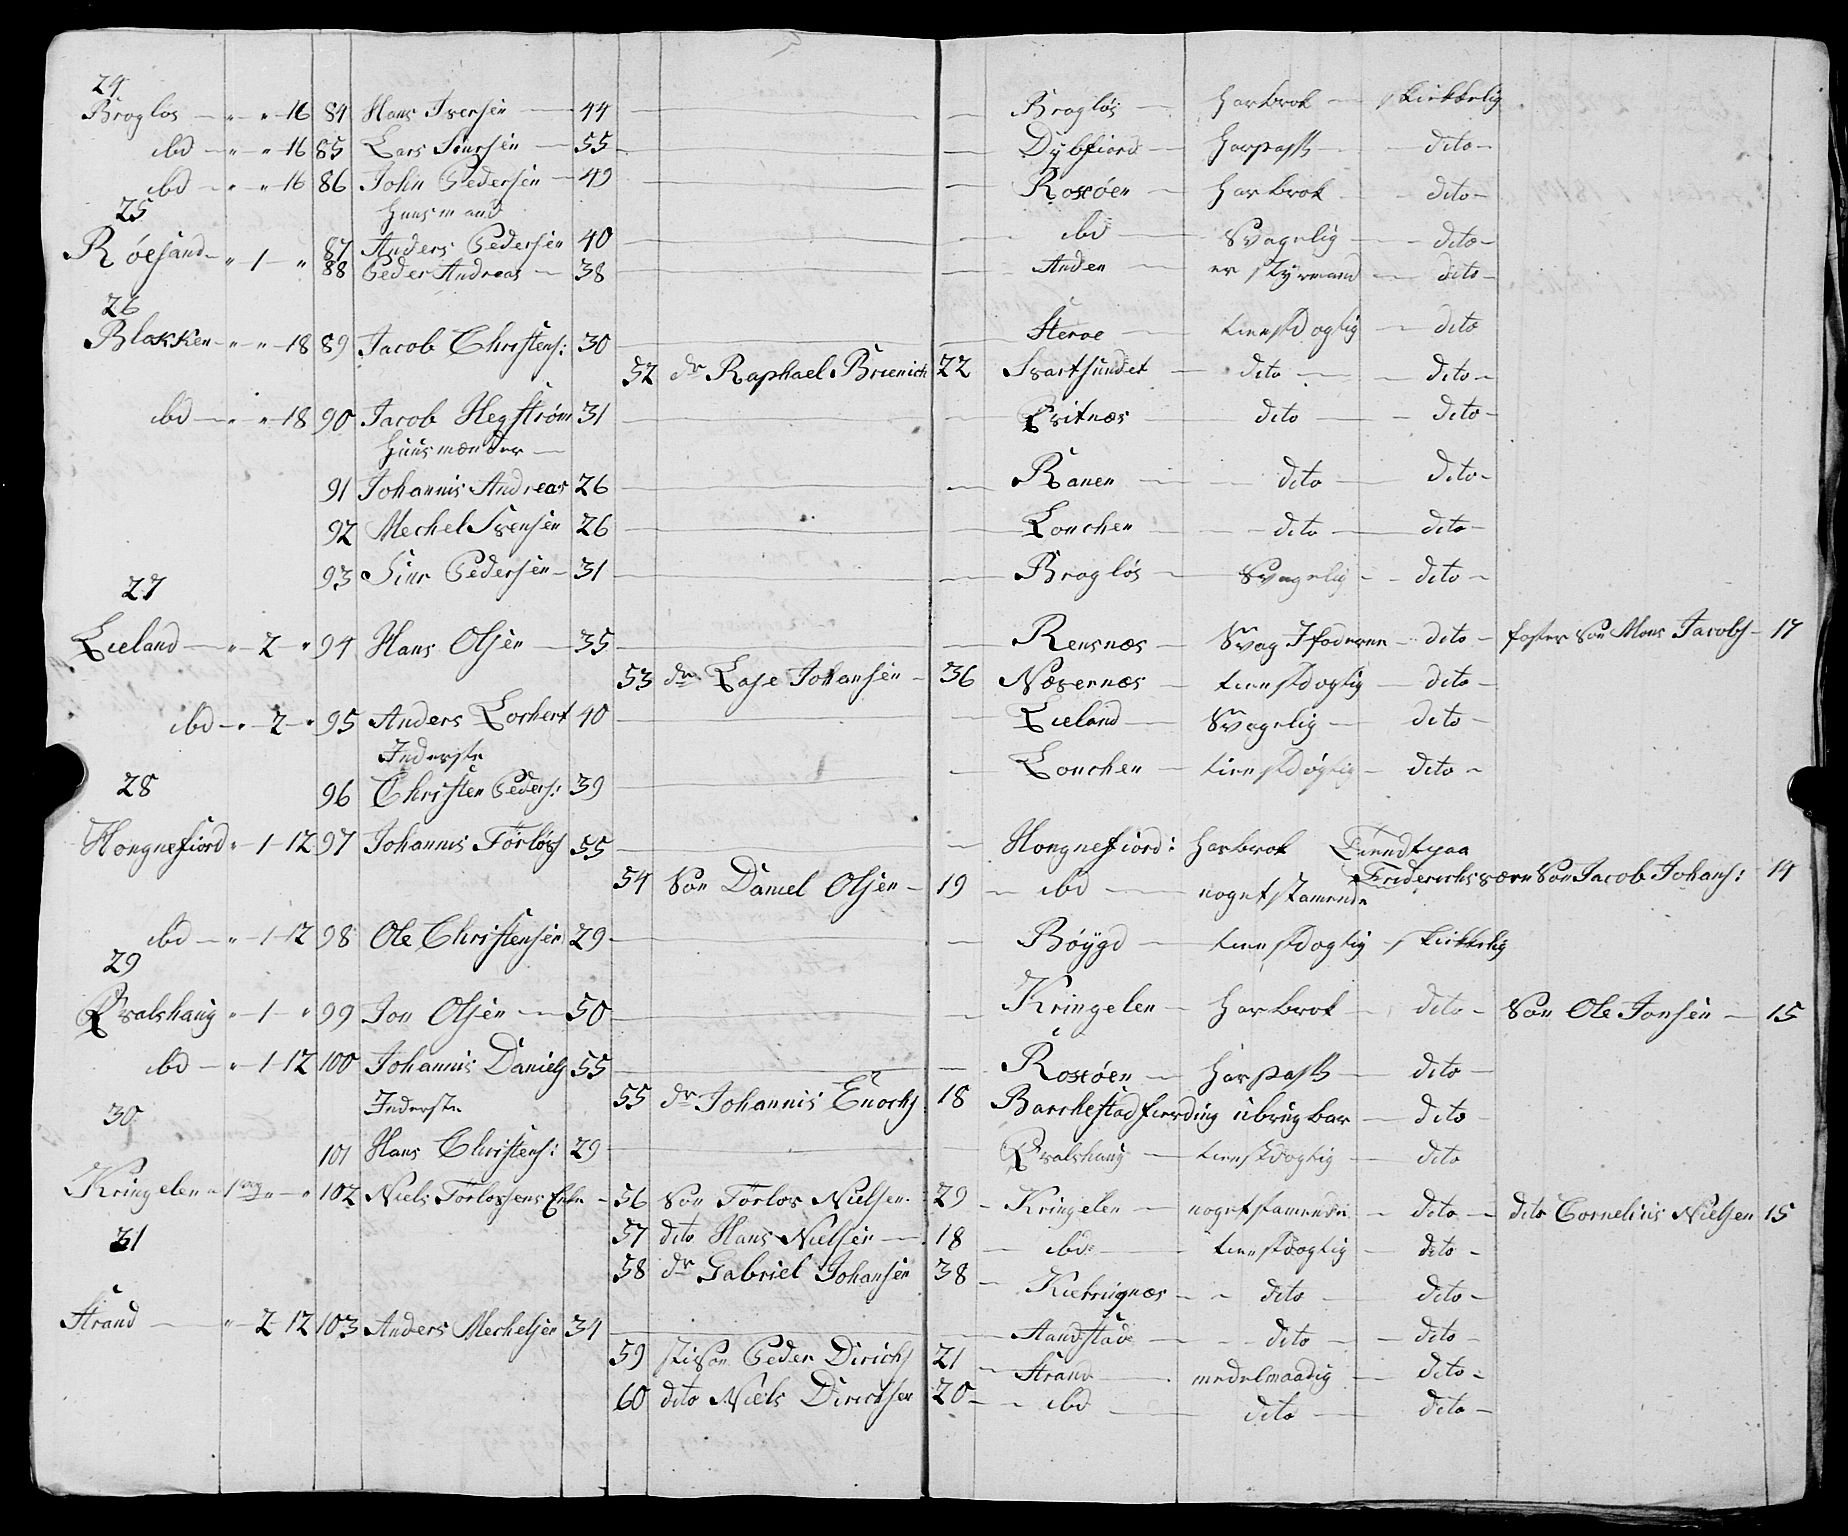 24
Broglos — " " 16 84 Hans Iversen — 44 — Bragløs — harbrok — skikkelig
ibd — " " 16 85 Lars Siursen — 55 — Dybfiord — harpass — dito —
ibd — " " 16 86 John Pedersen — 49 — Roxøen — harbrok — dito —
25 Huusmand
Røesand — " 1 " 87 Anders Pedersen 40 — ibd — Svagelig — dito —
88 Peder Andreas — 38 — Anden — er styrmand — dito —
26
Blokken — " " 18 89 Jacob Christens: 30 — Steroe — tienstdogtig — dito
52 dr Raphael Brienich 22 Svartsundet — dito — dito —
ibd — " " 18 90 Jacob Hegstrøm 31 — Qvitnæs — dito — dito —
Huusmænder —
91 Johannis Andreas 26 — Ranen — dito — dito —
92 Mechel Svensen 26 — Lonchen — dito — dito —
93 Siur Pedersen — 31 — Bragløs — Svagelig — dito —
27
Lieland — " 2 " 94 Hans Olsen — 35 — Rensnæs — Svag I foderne — dito — foster Søn Mons Jacobs — 17
53 dr Lase Johansen — 36 Næsernæs — tienstdogtig — dito —
ibd — " 2 " 95 Anders Lorhert 40 — Lieland — Svagelig — dito —
Inderste
28 96 Christen Peders: 39 — Lonchen — tienstdogtig — dito —
Hongnefiord " 1 12 97 Johannis Törløss 55 — Hongnefiord: harbrok Tiendtpaa
54 Søn Daniel Olsen — 19 — ibd — noget stamende Friderichsværn Søn Jacob Johans: 14
ibd — " 1 12 98 Ole Christensen 29 — Bøygd — tienstdogtig — skikkelig
29
Qvalshaug " 1 " 99 Jon Olsen — 50 — Kringelen — harbrok — dito — Søn Ole Jonsen — 15
ibd — " 1 12 100 Johannis Daniels 55 — Roxøen — harpass — dito —
Inderste 55 dr Johannis Enochs 18 Barchestad fierding ubrugbar — dito —
30
101 Hans Christens: 29 — Qvalshaug — tienstdogtig — dito
Kringelen " 1 vog " " 102 Niels Törlossens Enke — 56 Søn Törlos Nielsen — 29 — Kringelen — noget stamende — dito — dito Cornelius Nielsen 15
31 57 dito Hans Nielsen — 18 — ibde — tienstdogtig — dito —
58 dr Gabriel Johansen 38 — dito — dito —
Strand — " 2 12 103 Anders Mechelsen 34 — Sandstade — dito — dito —
59 stisøn Peder Dirichs 21 — Strand — medelmaadig — dito —
60 dito Niels Dirichsen 20 — ibd — dito — dito —